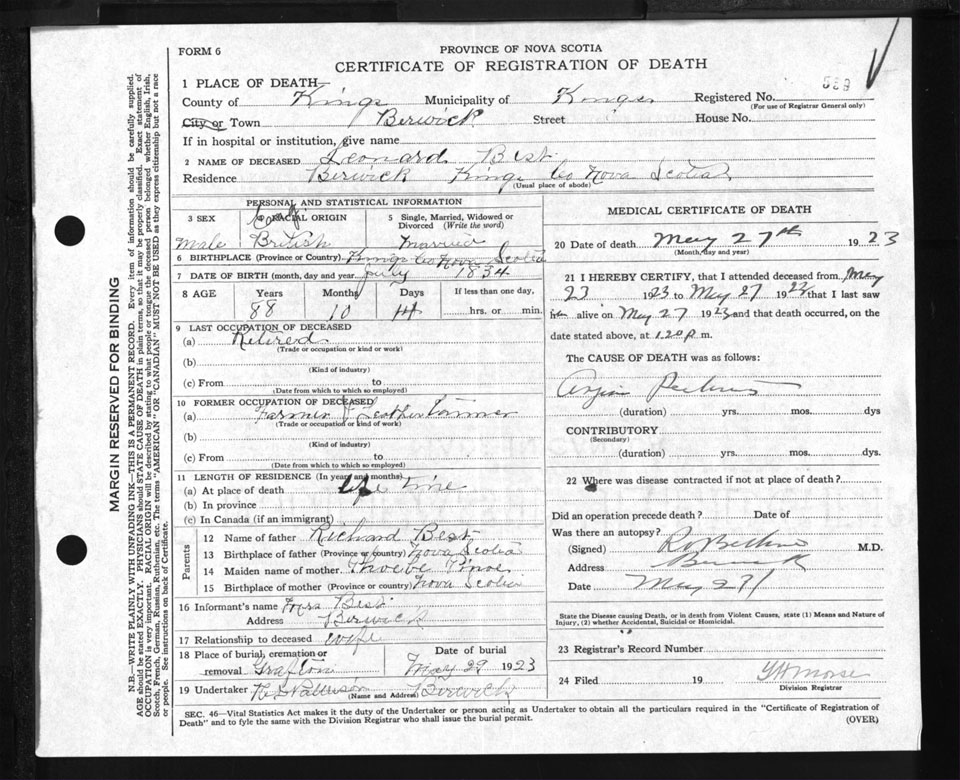 FORM 6
PROVINCE OF NOVA SCOTIA
CERTIFICATE OF REGISTRATION OF DEATH
1 PLACE OF DEATH—
County of Kings Municipality of Kings Registered No.
(For use of Registrar General only)
City or Town Berwick Street House No.
If in hospital or institution, give name
2 NAME OF DECEASED Leonard Best
Residence Berwick Kings Co Nova Scotia
(Usual place of abode)
PERSONAL AND STATISTICAL INFORMATION
3 SEX
4 RACIAL ORIGIN
5 Single, Married, Widowed or Divorced (Write the word)
Male British Married
6 BIRTHPLACE (Province or Country) Kings Co Nova Scotia
7 DATE OF BIRTH (month, day and year) July 1834
8 AGE Years Months Days If less than one day,
88 10 hrs. or min.
9 LAST OCCUPATION OF DECEASED
(a) Retired
(Trade or occupation or kind or work)
(b)
(Kind of industry)
(c) From to
(Date from which to which so employed)
10 FORMER OCCUPATION OF DECEASED
(a) Farmer & Leather tanner
(Trade or occupation or kind of work)
(b)
(Kind of industry)
(c) From to
(Date from which to which so employed)
11 LENGTH OF RESIDENCE (In years and months)
(a) At place of death life time
(b) In province
(c) In Canada (if an immigrant)
Parents
12 Name of father Richard Best
13 Birthplace of father (Province or country) Nova Scotia
14 Maiden name of mother Phoebe
15 Birthplace of mother (Province or country) Nova Scotia
16 Informant's name Best
Address Berwick
17 Relationship to deceased wife
18 Place of burial, cremation or removal Grafton
Date of burial May 29 1923
19 Undertaker Berwick
(Name and Address)
MEDICAL CERTIFICATE OF DEATH
20 Date of death May 27th 1923
(Month, day and year)
21 I HEREBY CERTIFY, that I attended deceased from May
23 1923 to May 27 1923 that I last saw
him alive on May 27 1923 and that death occurred, on the
date stated above, at 1.20 P m.
The CAUSE OF DEATH was as follows:
Angina Pectoris
(duration) yrs. mos. dys
CONTRIBUTORY
(Secondary)
(duration) yrs. mos. dys.
22 Where was disease contracted if not at place of death?
Did an operation precede death? Date of
Was there an autopsy?
(Signed) M.D.
Address Berwick
Date May 29
State the Disease causing Death, or in death from Violent Causes, state (1) Means and Nature of
Injury, (2) whether Accidental, Suicidal or Homicidal.
23 Registrar's Record Number
24 Filed 19 Morse
Division Registrar
SEC. 46—Vital Statistics Act makes it the duty of the Undertaker or person acting as Undertaker to obtain all the particulars required in the "Certificate of Registration of
Death" and to fyle the same with the Division Registrar who shall issue the burial permit.
(OVER)
MARGIN RESERVED FOR BINDING
N.B—WRITE PLAINLY WITH UNFADING INK—THIS IS A PERMANENT RECORD. Every item of information should be carefully supplied.
AGE should be stated EXACTLY. PHYSICIANS should STATE CAUSE OF DEATH in plain terms, so that it may be properly classified. Exact statement of
OCCUPATION is very important. RACIAL ORIGIN will be described by stating to what people or tongue the deceased person belonged whether English, Irish,
Scotch, French, German, Russian, Ruthenian, etc. The terms "AMERICAN" or "CANADIAN" MUST NOT BE USED as they express citizenship but not a race
or people. See instructions on back of Certificate.